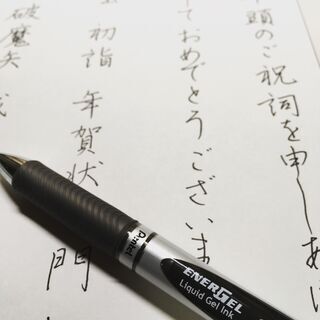 頭のご祝詞を申しあ
ておめでとうございま
初詣 年賀状 門
破魔矢
Pentel
ENERGEL
Liquid Gel Ink